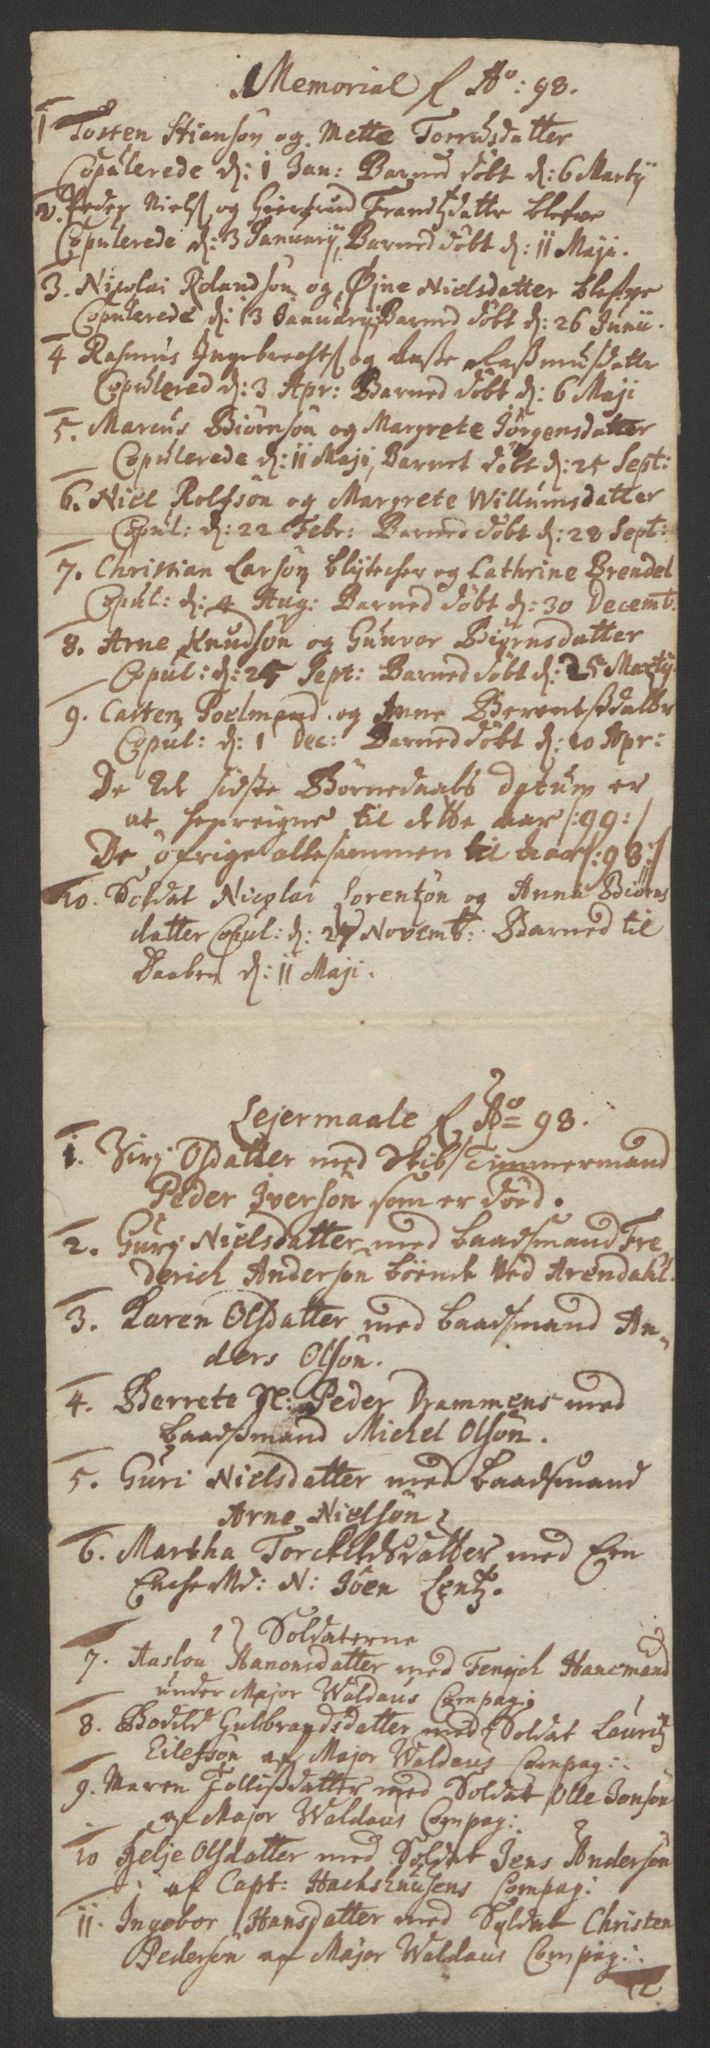 Memorial f Ao: 98.
1 Tosten Stiansøn og Mette Torrisdatter
Copulerede d: 1 Jan: Barned döbt d: 6 Martij
2. Peder Niels og Giertrud Frandsdatter blefve
Copulerede d: 3 Januarij, Barned döbt d: 11 Maji.
3. Nicolai Rolandsøn og Øjne Nielsdatter blefve
Copulerede d: 13 Januarij, Barned döbt d: 26 Junii.
4 Rasmus Ingebrechts og Aasse Rasmusdatter
Copulered d: 3 Apr: Barned döbt d: 6 Maji
5. Marcus Biörnsön og Margrete Jörgensdatter
Copulerede d: 11 Maji, Barnet döbt d: 25 Sept:
6. Niel Rolfsön og Margrete Willumsdatter
Copul: d: 22 Febr: Barned döbt d: 28 Sept:
7. Christian Larsön Blytecher og Cathrine Brendel
Copul: d: 4 Aug: Barned döbt d: 30 Decemb:
8. Arne Knudsön og Gunvor Biörnsdatter
Copul: d: 25 Sept: Barned döbt d: 25 Martij.
9. Casten Poelmand og Anne Berentsdatter
Copul: d: 1 Dec: Barned döbt d: 20 Apr:
De sidste Börnedaabs datum er
at henreigne til dette aar /:99:/
De öfrige allesammen til aar /:98:/
10. Soldat Nicolai Lorentsön og Anna Biörns
datter Copul: d: 27 Novemb: Barned til
Daaben d: 11 Maji.
Lejermaale f Ao 98.
1. Siri Osdatter med Skibs Timmermand
Peder Iversön som er död.
2. Guri Nielsdatter med baadsmand Fre
derich Andersön böende ved Arendahl.
3. Karen Olsdatter med baadsmand An-
ders Olsön.
4. Berrete N: Peder Drammens med
baadsmand Michel Olsön.
5. Guri Nielsdatter med baadsmand
Arne Nielsön
6. Martha Torckildsdatter med Een
Enche Md: N: Jöen Lentz.
Soldaterne
7. Aaslou Aanonsdatter med Fenrich Hanemand
under Major Waldaus Compag:
8. Bodild Gulbrandsdatter med Soldat Lauritz
Eilefsön af Major Waldaus Compag:
9. Maren Tollisdatter med Soldat Olle Jonsön
af Major Waldaus Compag:
10 Helje Olsdatter med Soldat Jens Andersön
af Capt: Hachshusens Compag:
11. Ingebor Hansdatter med Soldat Christen
Pedersön af Major Waldaus Compag: